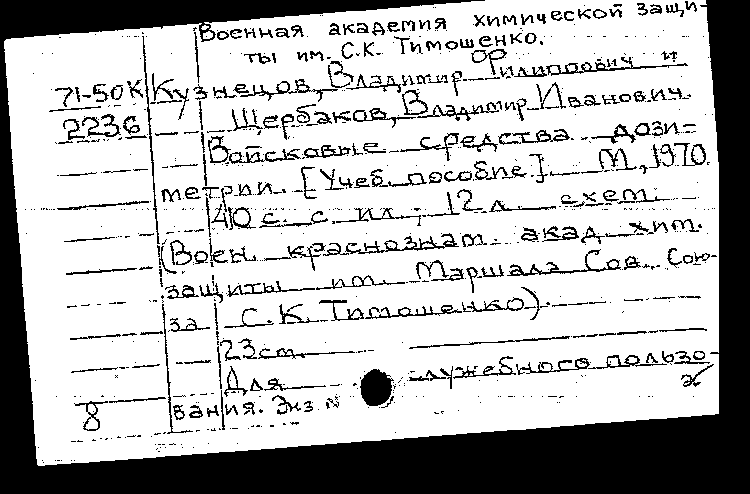 Военная академия химической защи-
ты им. С.К. Тимошенко.
71-50К Кузнецов, Владимир Филиппович и
2236 Щербаков, Владимир Иванович.
Войсковые средства дози-
метрии. [Учеб. пособие]. М, 1970
410 с. с ил.; 12 л. схем.
(Воен. краснознам. акад. хим.
защиты им. Маршала Сов. Сою-
за С.К. Тимошенко).
23см.
Для служебного пользо-
8 вания. Экз №